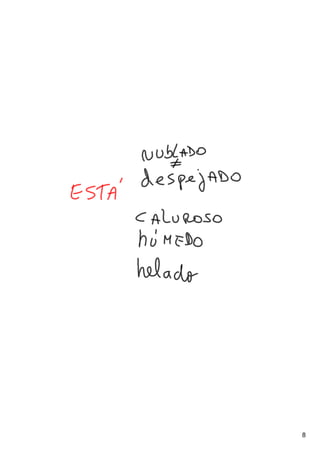 NUblADO
≠
despejADO
ESTÁ
CALUROSO
húMEDO
helado
8